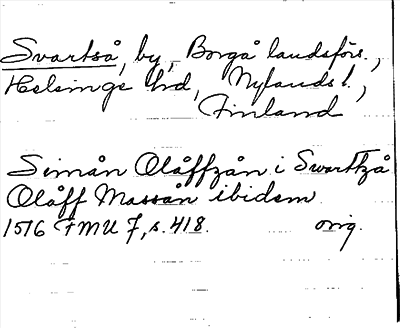 Svartså, by, Borgå landsförs.,
Helsinge hrd, Nylands l.,
Finland
Simån Olåffzån i Swarttzå
Olåff Massån ibidem
1516 FMU 7, s. 418. orig.